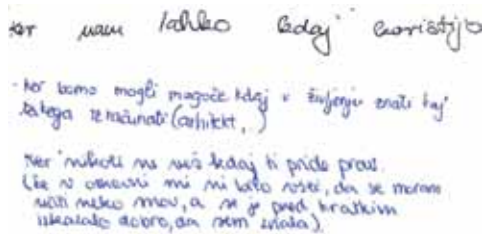 ker nam lahko kdaj koristijo
- ker bomo mogli mogoče kdaj v življenju znati kaj
takega izračunati (arhitekt, )
Ker nikoli ne veš kdaj ti pride prav.
(že v osnovni mi ni bilo všeč, da se moram
učiti neko snov, a se je pred kratkim
izkazalo dobro, da sem znala)